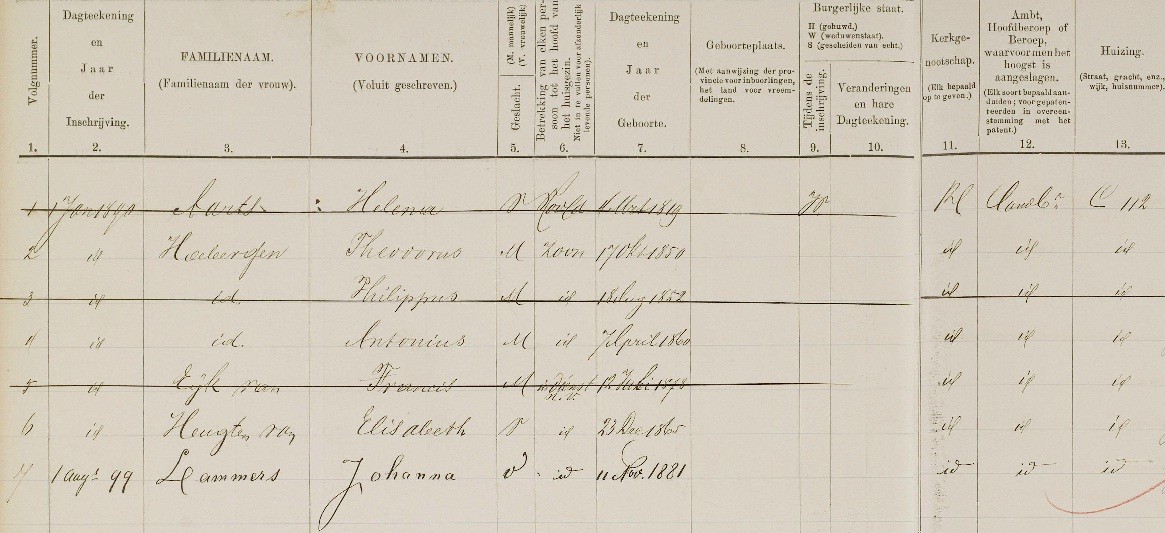 Volgnummer.
Dagteekening en Jaar der Inschrijving.
FAMILIENAAM.
(Familienaam der vrouw).
VOORNAMEN.
(Voluit geschreven.)
Geslacht. (M. mannelijk) (V. vrouwelijk)
Betrekking van elken persoon tot het hoofd van het huisgezin. Niet in te vullen voor afzonderlijk levende personen).
Dagteekening en Jaar der Geboorte.
Geboorteplaats.
(Met aanwijzing der provincie voor inboorlingen, het land voor vreemdelingen.
Burgerlijke staat.
H (gehuwd.)
W (weduwenstaat).
S (gescheiden van echt.)
Tijdens de inschrijving.
Veranderingen en hare Dagteekening.
Kerkgenootschap.
(Elk bepaald op te geven.)
Ambt, Hoofdberoep of Beroep, waarvoor men het hoogst is aangeslagen.
(Elk soort bepaald aanduiden; voor gepatenteerden in overeenstemming met het patent.)
Huizing.
(Straat, gracht, enz., wijk, huisnummer).
1. 2. 3. 4. 5. 6. 7. 8. 9. 10. 11. 12. 13.
1 1 Jan 1890 Aarts Helena V Hoofd 1819 W RC Landbr C 112
2 id Theodorus M Zoon 17 Okt 1850 id id id
3 id id. Philippus M id 18 Aug 1852 id id id
4 id id. Antonius M id 7 April 1860 id id id
5 id Eijk van Francis M 12 id id id
6 id Heugten van Elisabeth V id 23 Dec 1865 id id id
7 1 Augs 99 Lammers Johanna V id 11 Nov. 1881 id id id